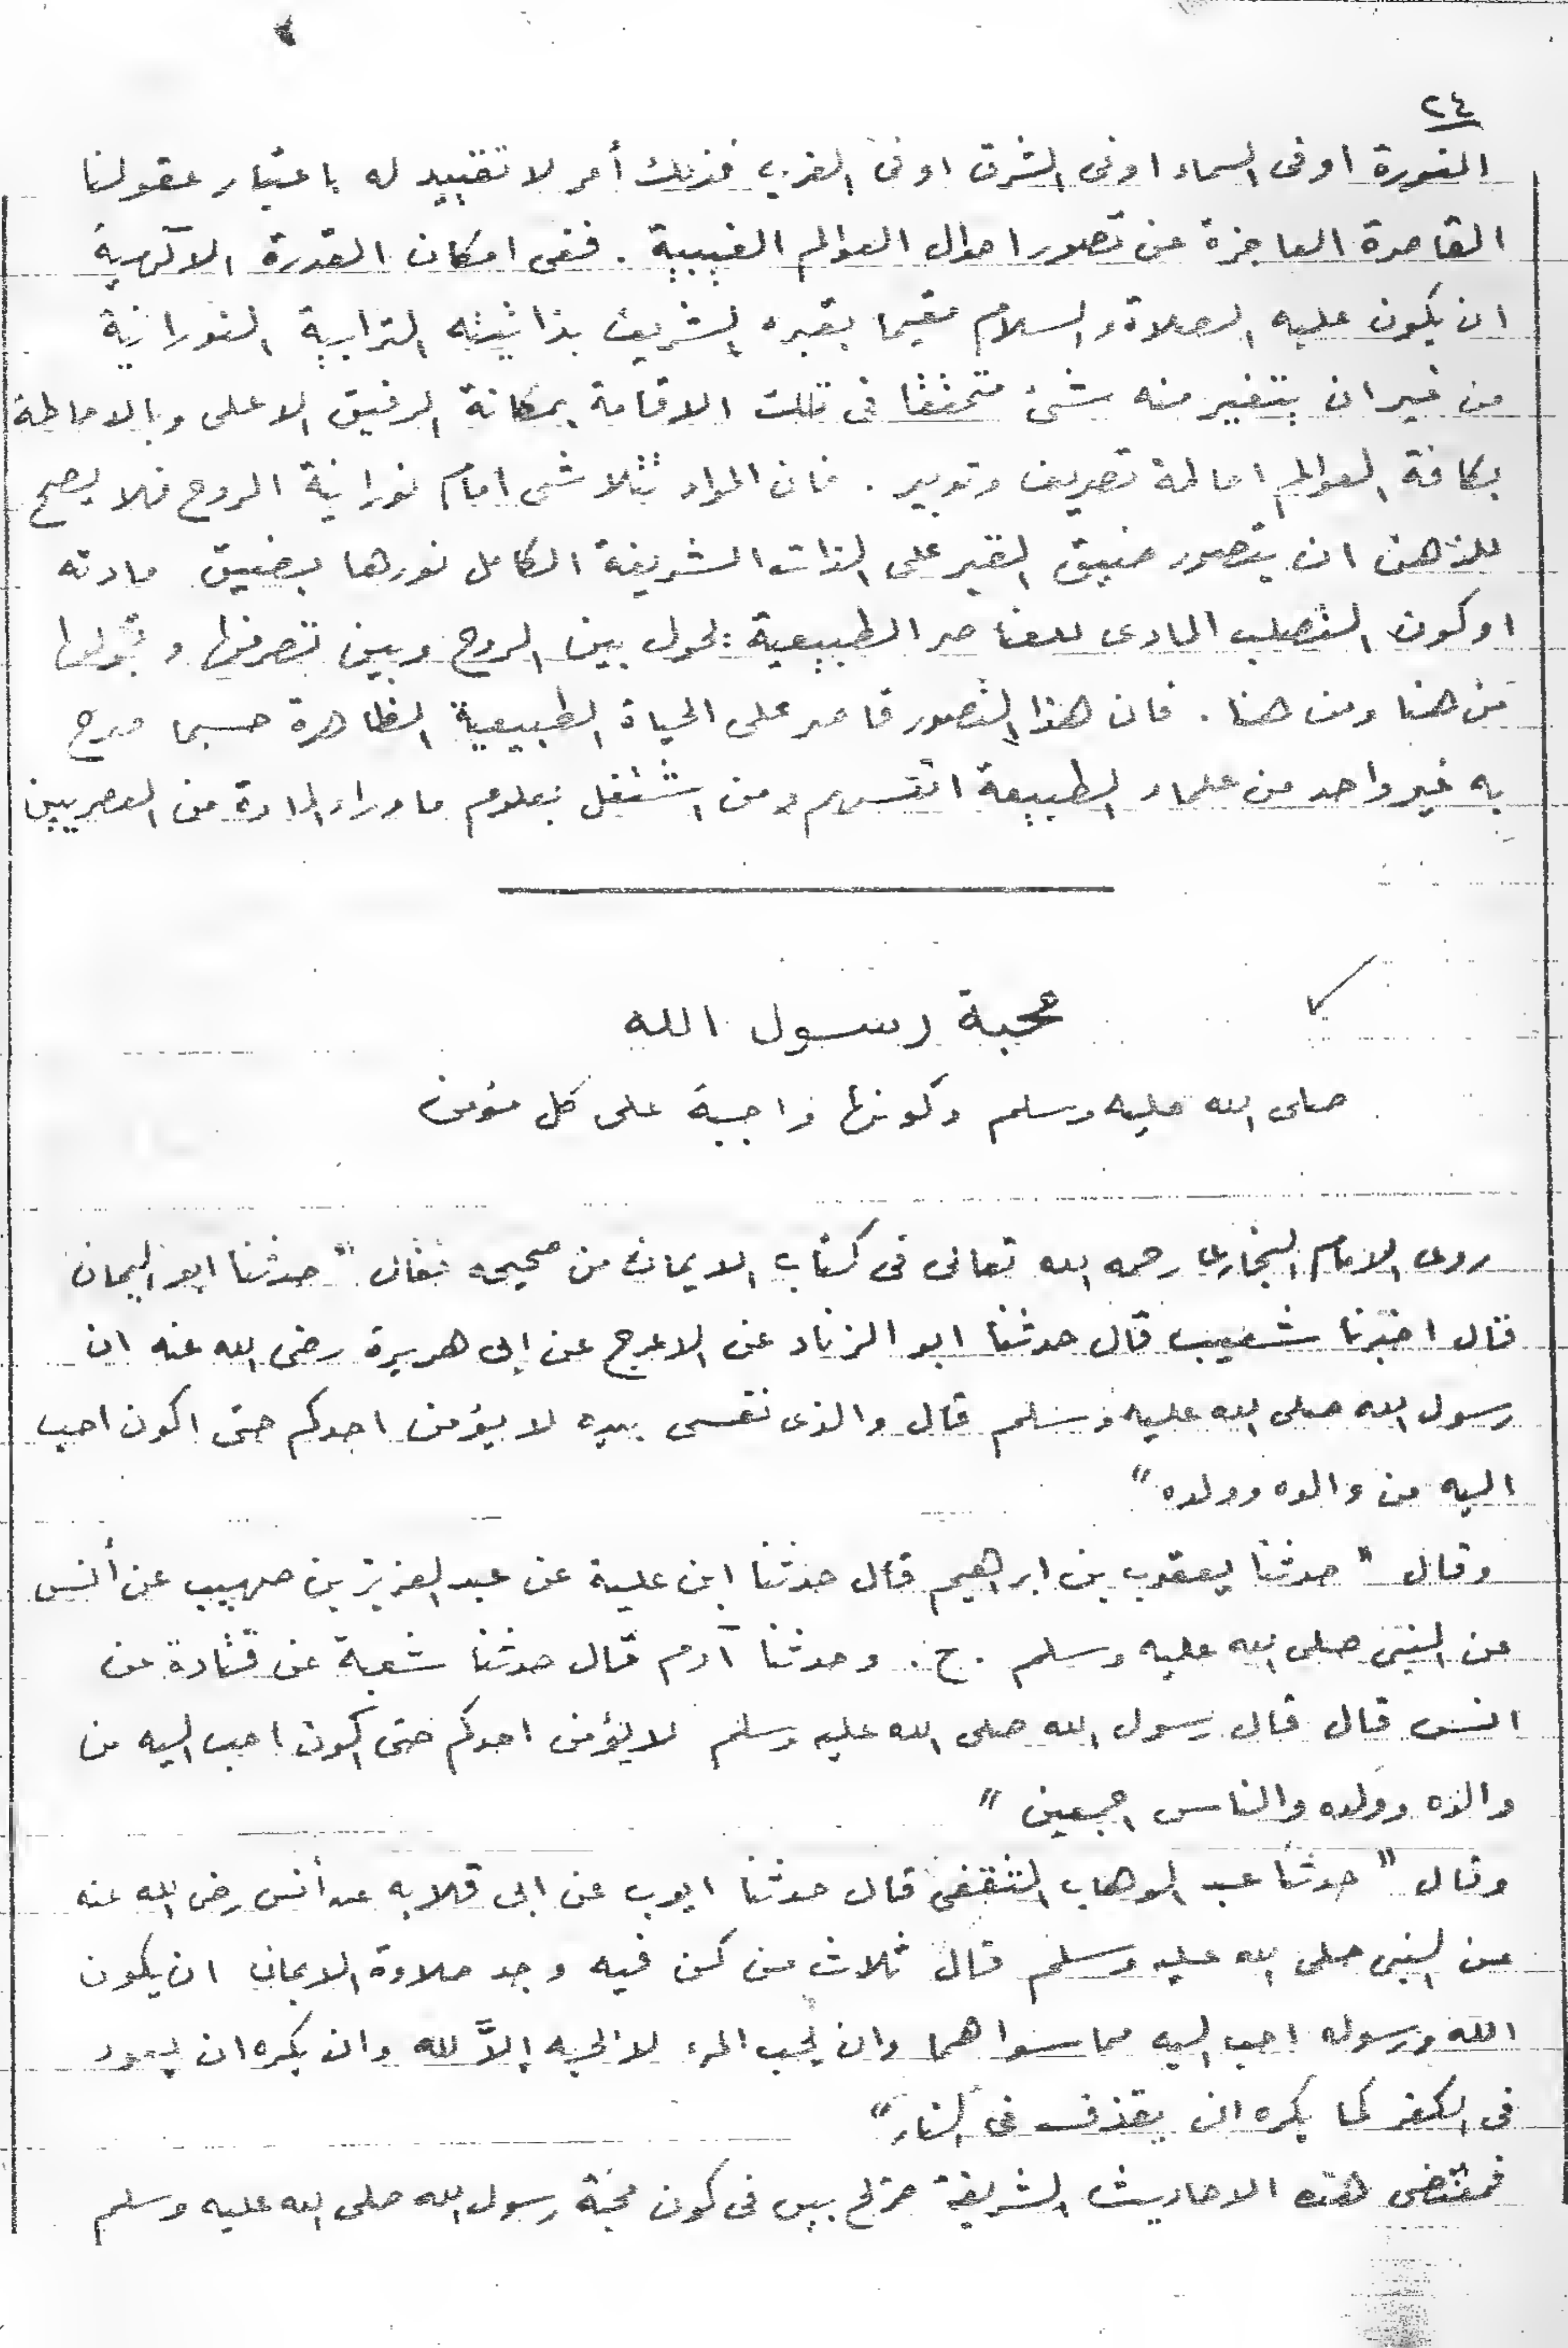 ٢٤
المنورة او فى السماء او فى الشرق او فى الغرب فذلك أمر لا تقييد له باعتبار عقولنا
القاصرة العاجزة عن تصور احوال العوالم الغيبية . ففى امكان القدرة الآلهية
ان يكون عليه الصلاة والسلام مقيما بقبره الشريف بذاتيته الترابية النورانية
من غير ان يتغير منه شئ متحققا فى تلك الاقامة بمكانة الرفيق الاعلى وبالاحاطة
بكافة العوالم احاطة تصريف وتدبير . فان المواد تتلاشى امام نورانية الروح فلا يصح
للذهن ان يتصور ضيق القبر على الذات الشريفة الكامل نورها بضيق مادته
او كون التصلب المادى للعناصر الطبيعية يحول بين الروح وبين تصرفها وتجولها
من هنا ومن هنا . فان هذا التصور قاصر على الحياة الطبيعية الظاهرة حسبما صرح
به غير واحد من علماء الطبيعة انفسهم ومن اشتغل بعلوم ما وراء المادة من العصريين
محبة رسول الله
صلى الله عليه وسلم وكونها واجبة على كل مؤمن
روى الامام البخارى رحمه الله تعالى فى كتاب الايمان من صحيحه فقال " حدثنا ابو اليمان
قال اخبرنا شعيب قال حدثنا ابو الزناد عن الاعرج عن ابى هريرة رضى الله عنه ان
رسول الله صلى الله عليه وسلم قال والذى نفسى بيده لا يؤمن احدكم حتى اكون احب
اليه من والده وولده "
وقال " حدثنا يعقوب بن ابراهيم قال حدثنا ابن علية عن عبد العزيز بن صهيب عن أنس
عن النبى صلى الله عليه وسلم . ح . وحدثنا آدم قال حدثنا شعبة عن قتادة عن
انس قال قال رسول الله صلى الله عليه وسلم لا يؤمن احدكم حتى اكون احب اليه من
والده وولده والناس اجمعين "
وقال " حدثنا عبد الوهاب الثقفى قال حدثنا ايوب عن ابى قلابه عن أنس رضى الله عنه
عن النبى صلى الله عليه وسلم قال ثلاث من كن فيه وجد حلاوة الايمان ان يكون
الله ورسوله احب اليه مما سواهما وان يحب المرء لا يحبه إلاَّ لله وان يكره ان يعود
فى الكفر كما يكره ان يقذف فى النار "
فمقتضى هذه الاحاديث الشريفة صريح بين فى كون محبة رسول الله صلى الله عليه وسلم